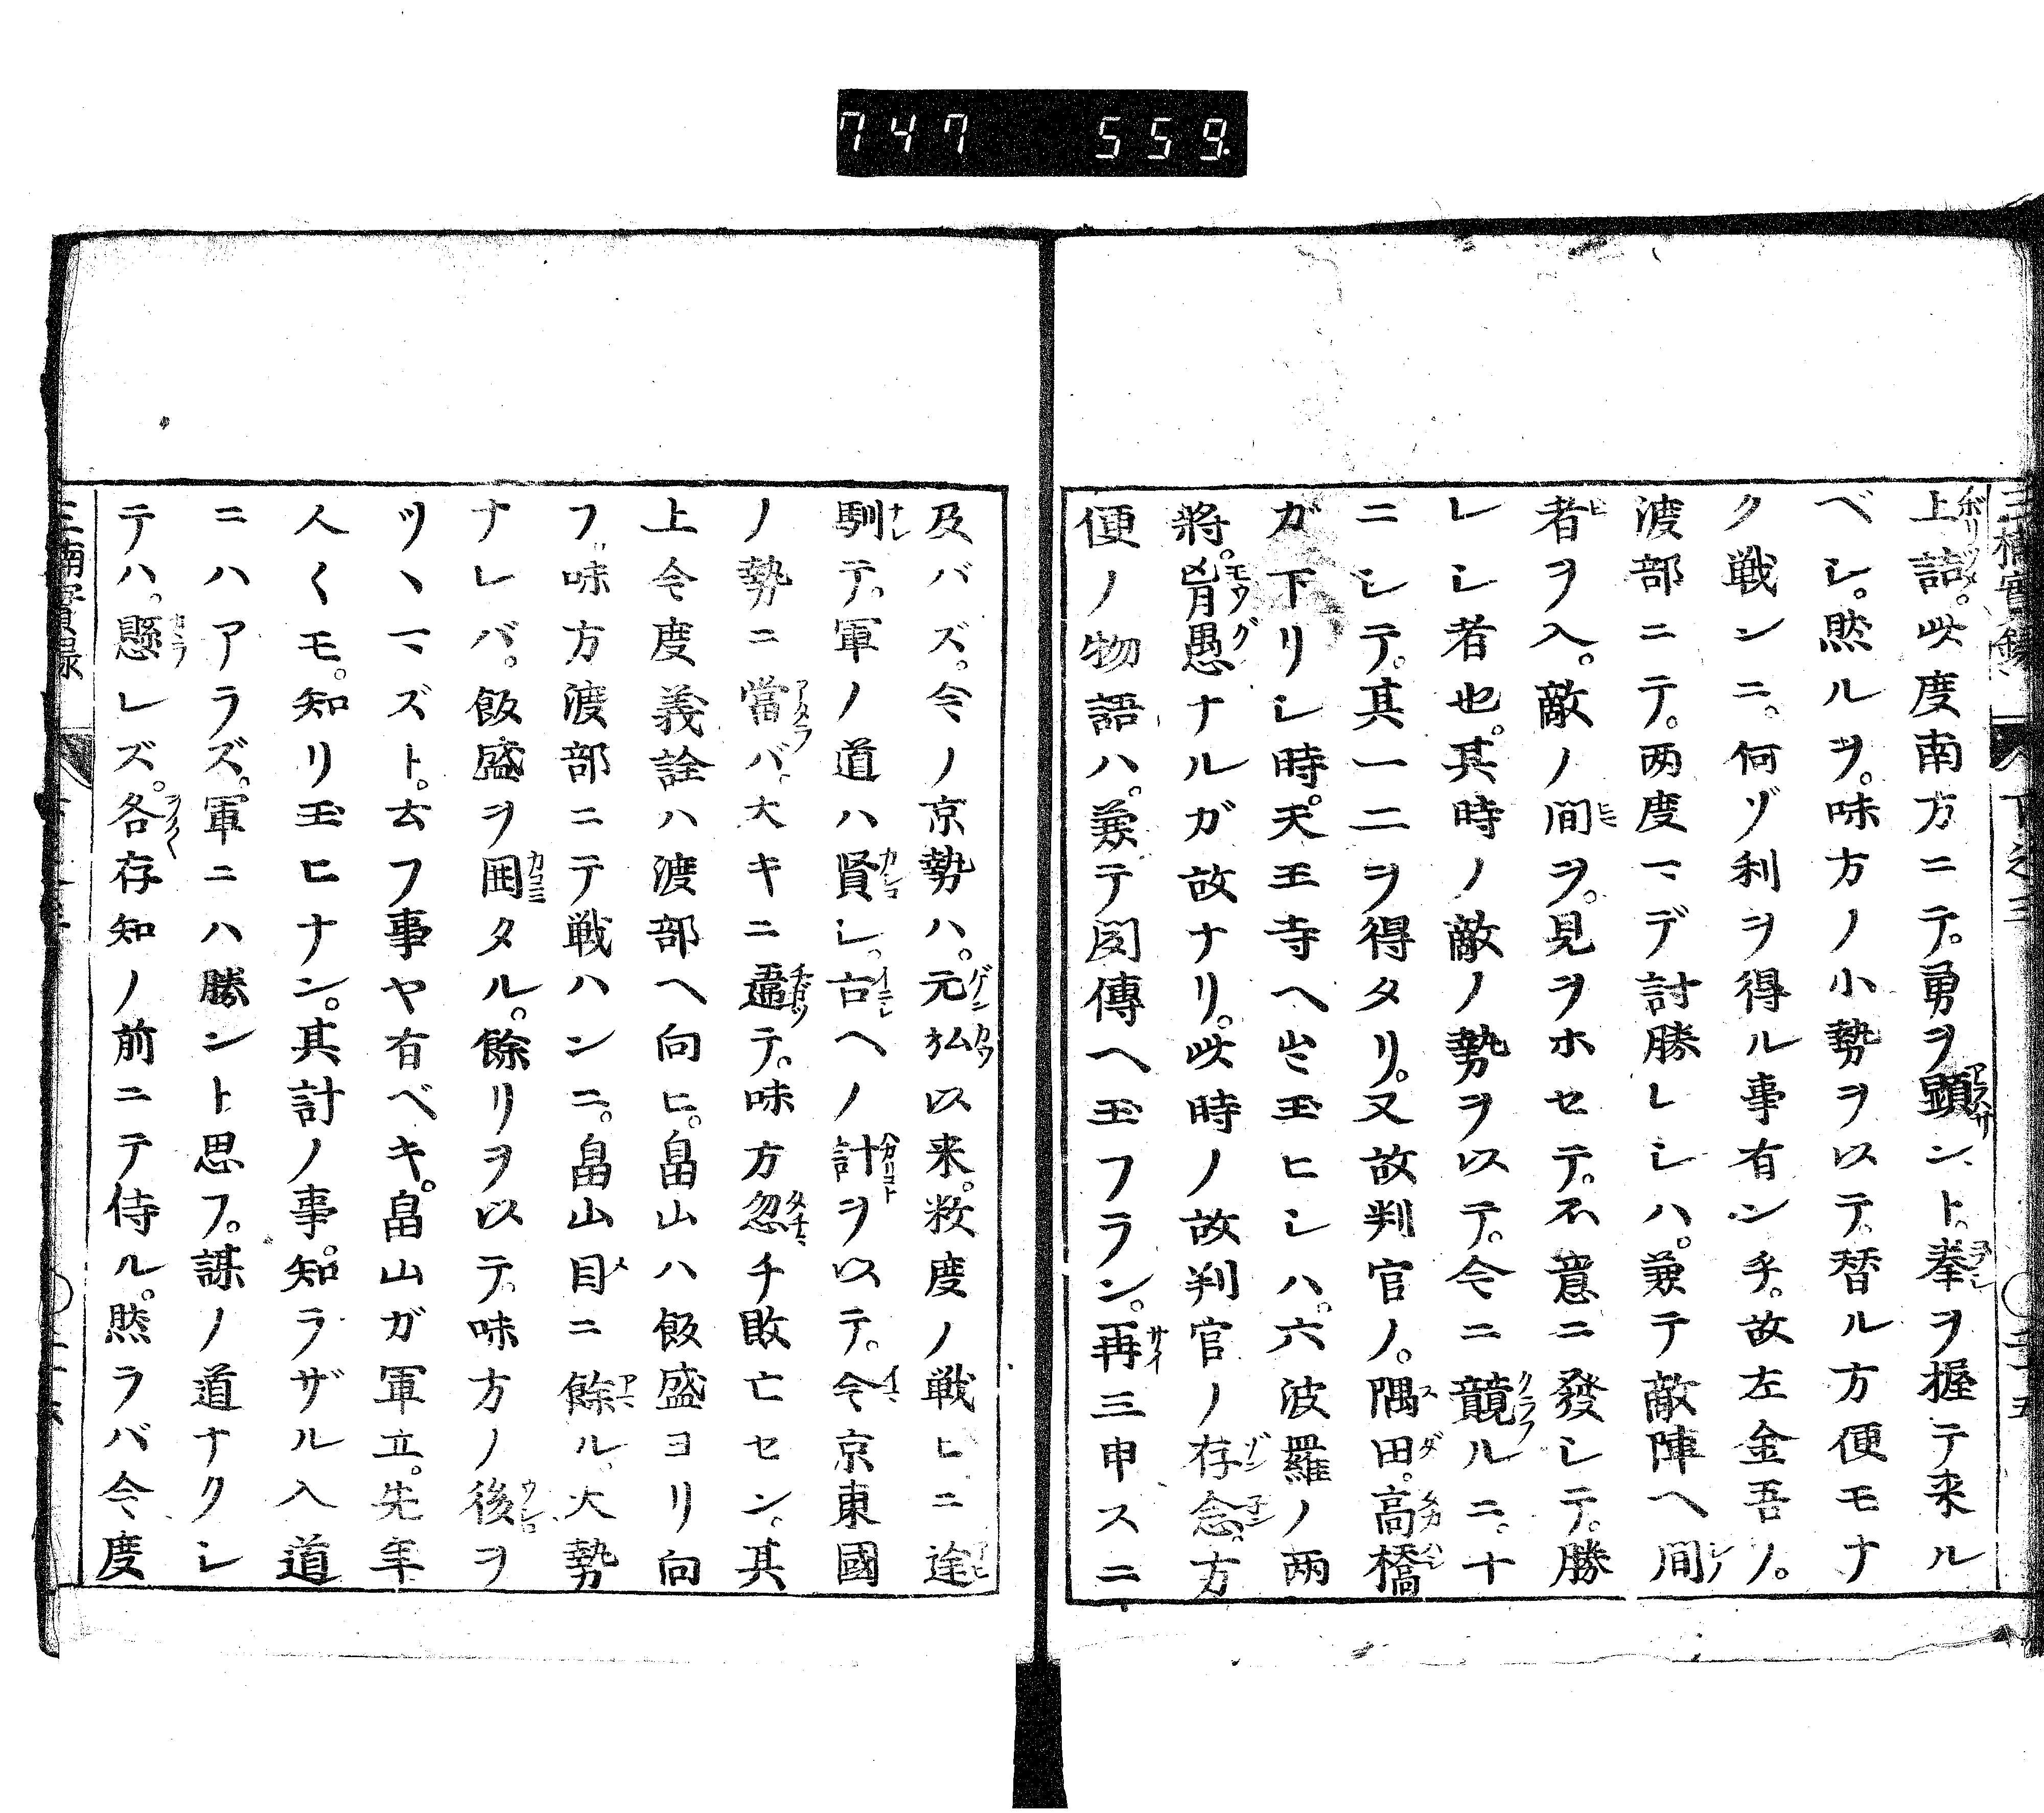 747 559
上詰。此度南方ニテ。勇ヲ顕ン、ト。拳ヲ握テ来ル
ベシ。然ルヲ。味方ノ小勢ヲ以テ。替ル方便モナ
ク戦ンニ。何ゾ利ヲ得ル事有ンヤ。故左金吾ノ。
渡部ニテ。两度マデ討勝レシハ。兼テ敵陣ヘ間
者ヲ入。敵ノ間ヲ。見ヲホセテ。不意ニ發シテ。勝
レシ者也。其時ノ敵ノ勢ヲ以テ。今ニ競ルニ。十
ニシテ。其一二ヲ得タリ。又故判官ノ。隅田。高橋
ガ下リシ時。天王寺ヘ出玉ヒシハ。六波羅ノ两
將。盲愚ナルガ故ナリ。此時ノ故判官ノ存念。方
便ノ物語ハ。兼テ聞傳ヘ玉フラン。再三申スニ
及バズ。今ノ京勢ハ。元弘以来。数度ノ戦ヒニ逢
馴テ。軍ノ道ハ賢シ。古ヘノ計ヲ以テ。今京東國
ノ勢ニ當バ。大キニ違テ。味方忽チ敗亡セン。其
上今度義詮ハ渡部ヘ向ヒ。畠山ハ飯盛ヨリ向
フ。味方渡部ニテ戦ハンニ。畠山目ニ餘ル。大勢
ナレバ。飯盛ヲ囲タル。餘リヲ以テ。味方ノ後ヲ
ツヽマズト。云フ事ヤ有ベキ。畠山ガ軍立。先年
人〱モ。知リ玉ヒナン。其計ノ事。知ラザル入道
ニハアラズ。軍ニハ勝ント思フ。謀ノ道ナクシ
テハ。懸レズ。各存知ノ前ニテ侍ル。然ラバ今度